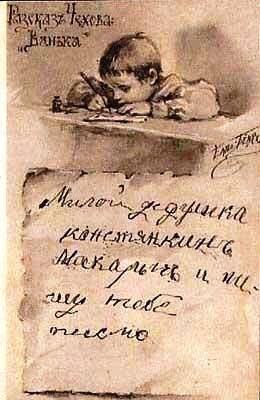 Разсказъ Чехова:
"Ванька"
Милой дедушка
канстянкинъ
Макарычъ и пи-
шу тебѣ
писмо